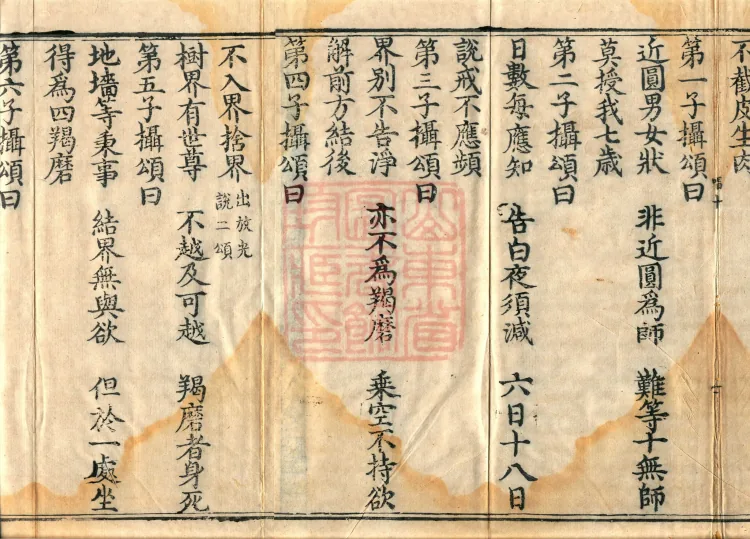 不皮生肉
第一子攝頌曰
近圓男女狀　非近圓爲師　難等十無師
莫授我七歲
第二子攝頌曰
日數每應知　告白夜須減　六日十八日
說戒不應頻
第三子攝頌曰
界別不告淨　亦不爲羯磨　乘空不持欲
解前方結後
第四子攝頌曰
不入界捨界
出放光
說二頌
樹界有世尊　不越及可越　羯磨者身死
第五子攝頌曰
地墻等秉事　結界無與欲　但於一處坐
得爲四羯磨
第六子攝頌曰